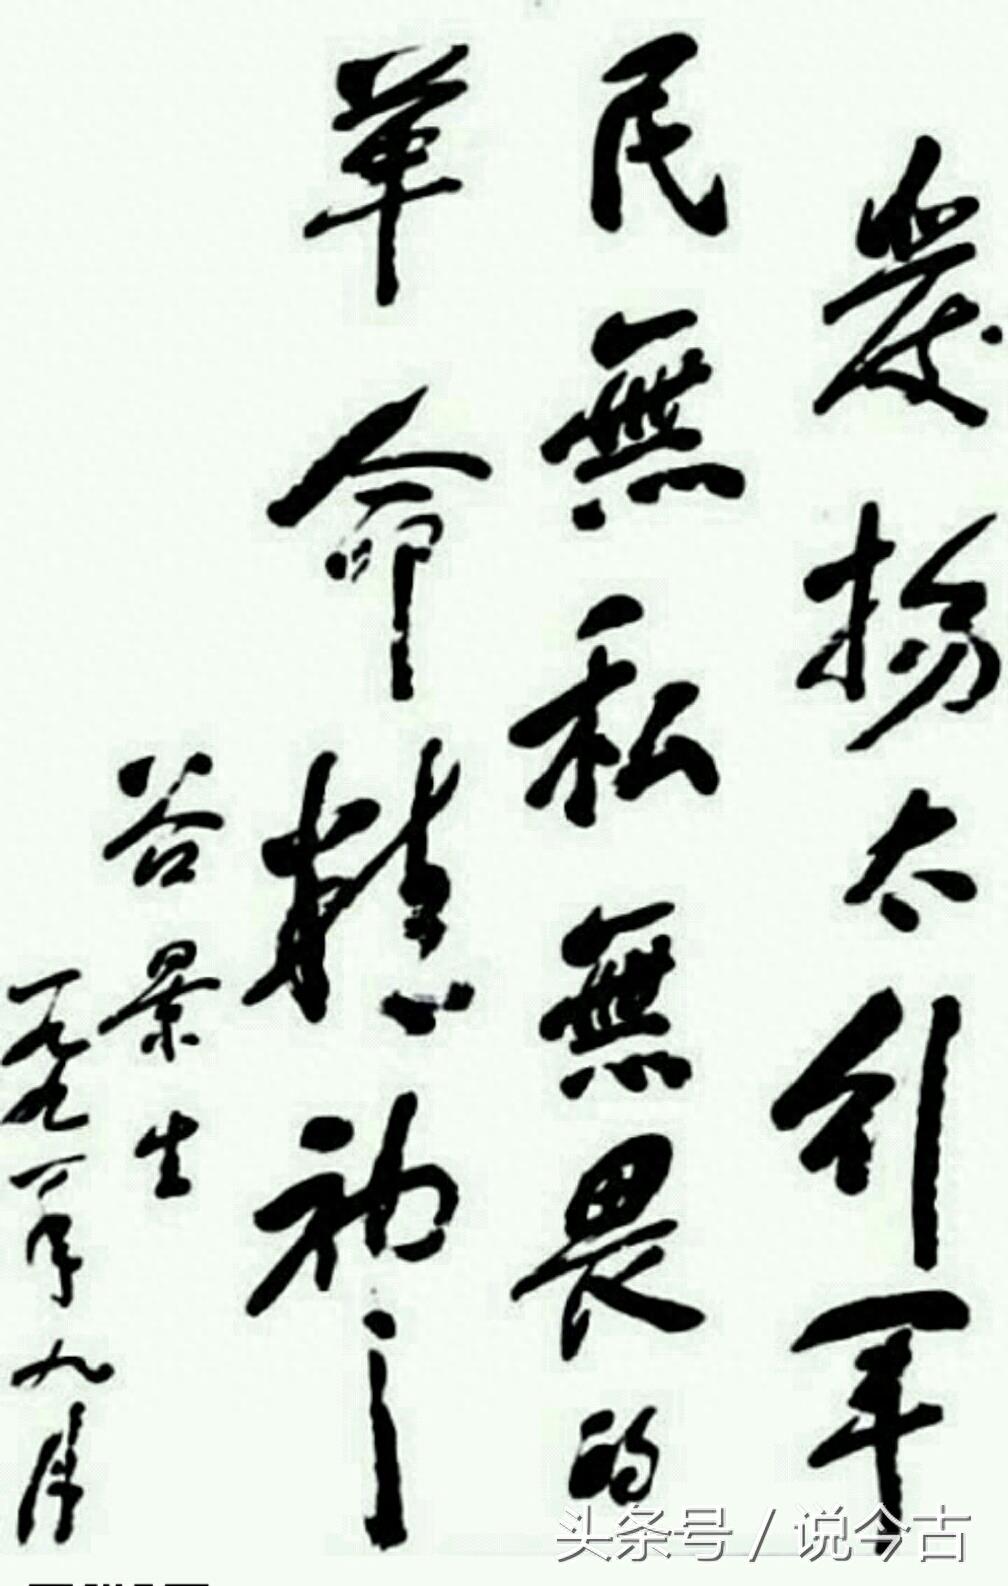 发扬太创军
民無私無畏的
革命精神
谷景生
一九九一年九月
头条号 / 说今古